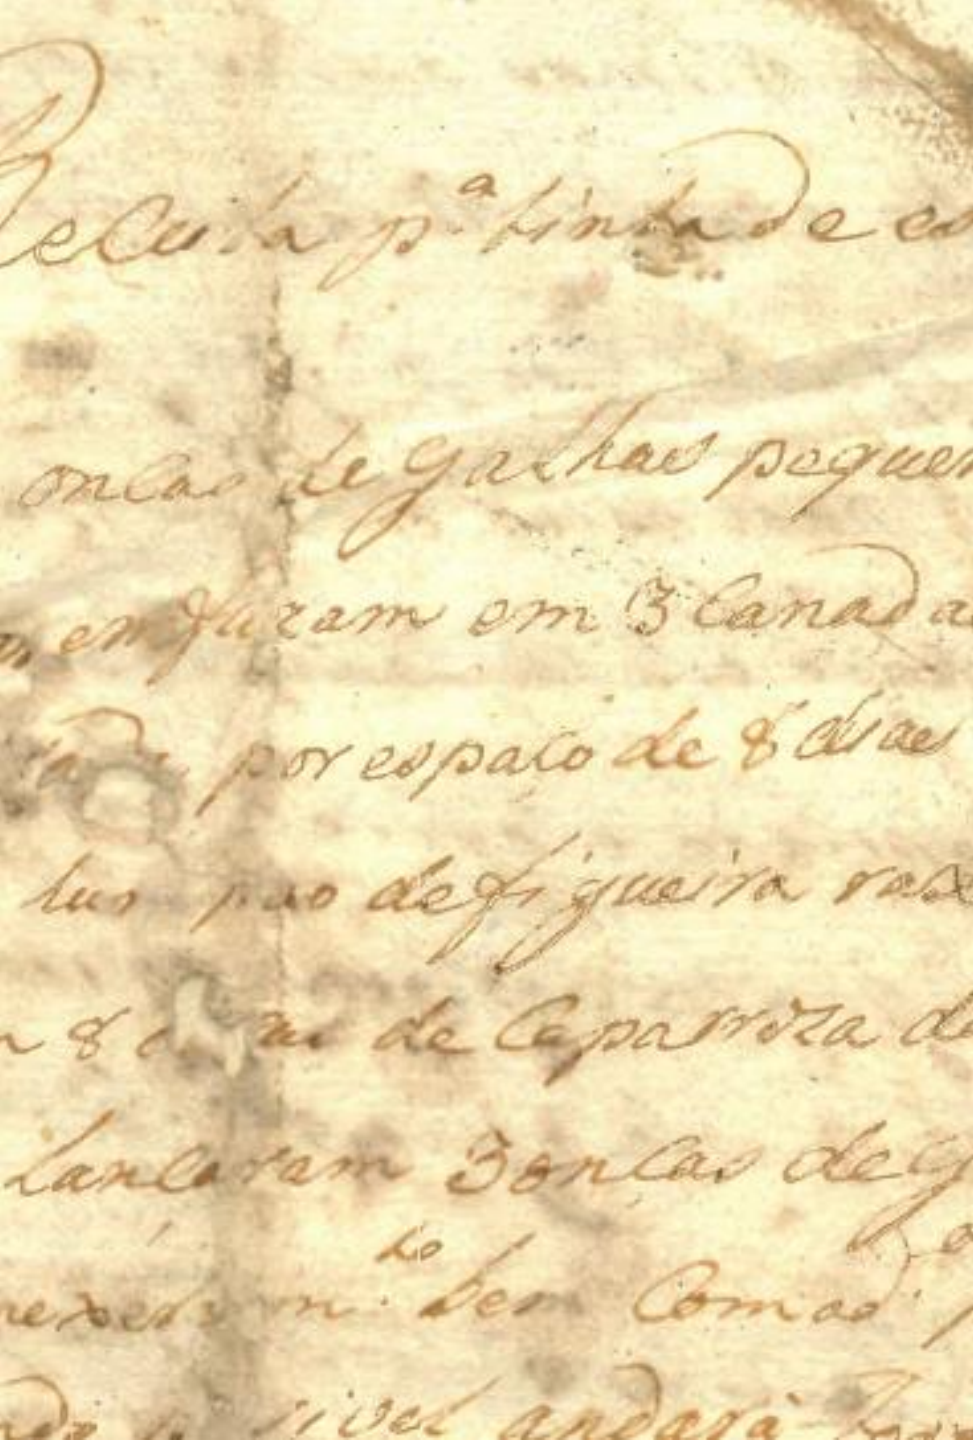 Receita pª tinta de es
onças de Galhas peque
em fuzam em 3 Canada
por espaço de 8 dias
hum pao de figueira
8 de Caparroza de
Lançaram 3 onças de G
mexeram mto bem Com ao
sivel andará